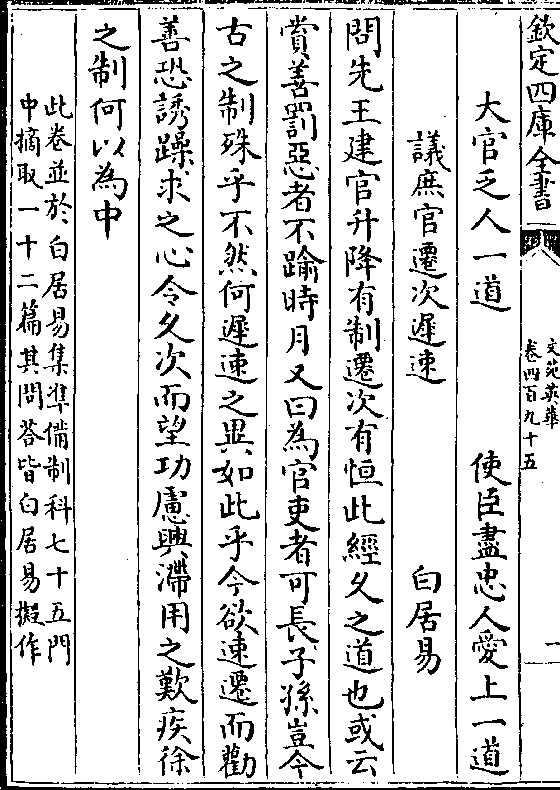 欽定四庫全書
文苑英華
卷四百九十五
一
大官乏人一道 使臣盡忠人愛上一道
議庶官遷次遲速 白居易
問先王建官升降有制遷次有恒此經久之道也或云
賞善罰惡者不踰時月又曰為官吏者可長子孫豈今
古之制殊乎不然何遲速之異如此乎今欲速遷而勸
善恐誘躁求之心令久次而望功慮興滯用之歎疾徐
之制何以為中
此卷並於白居易集準備制科七十五門
中摘取一十二篇其問答皆白居易擬作